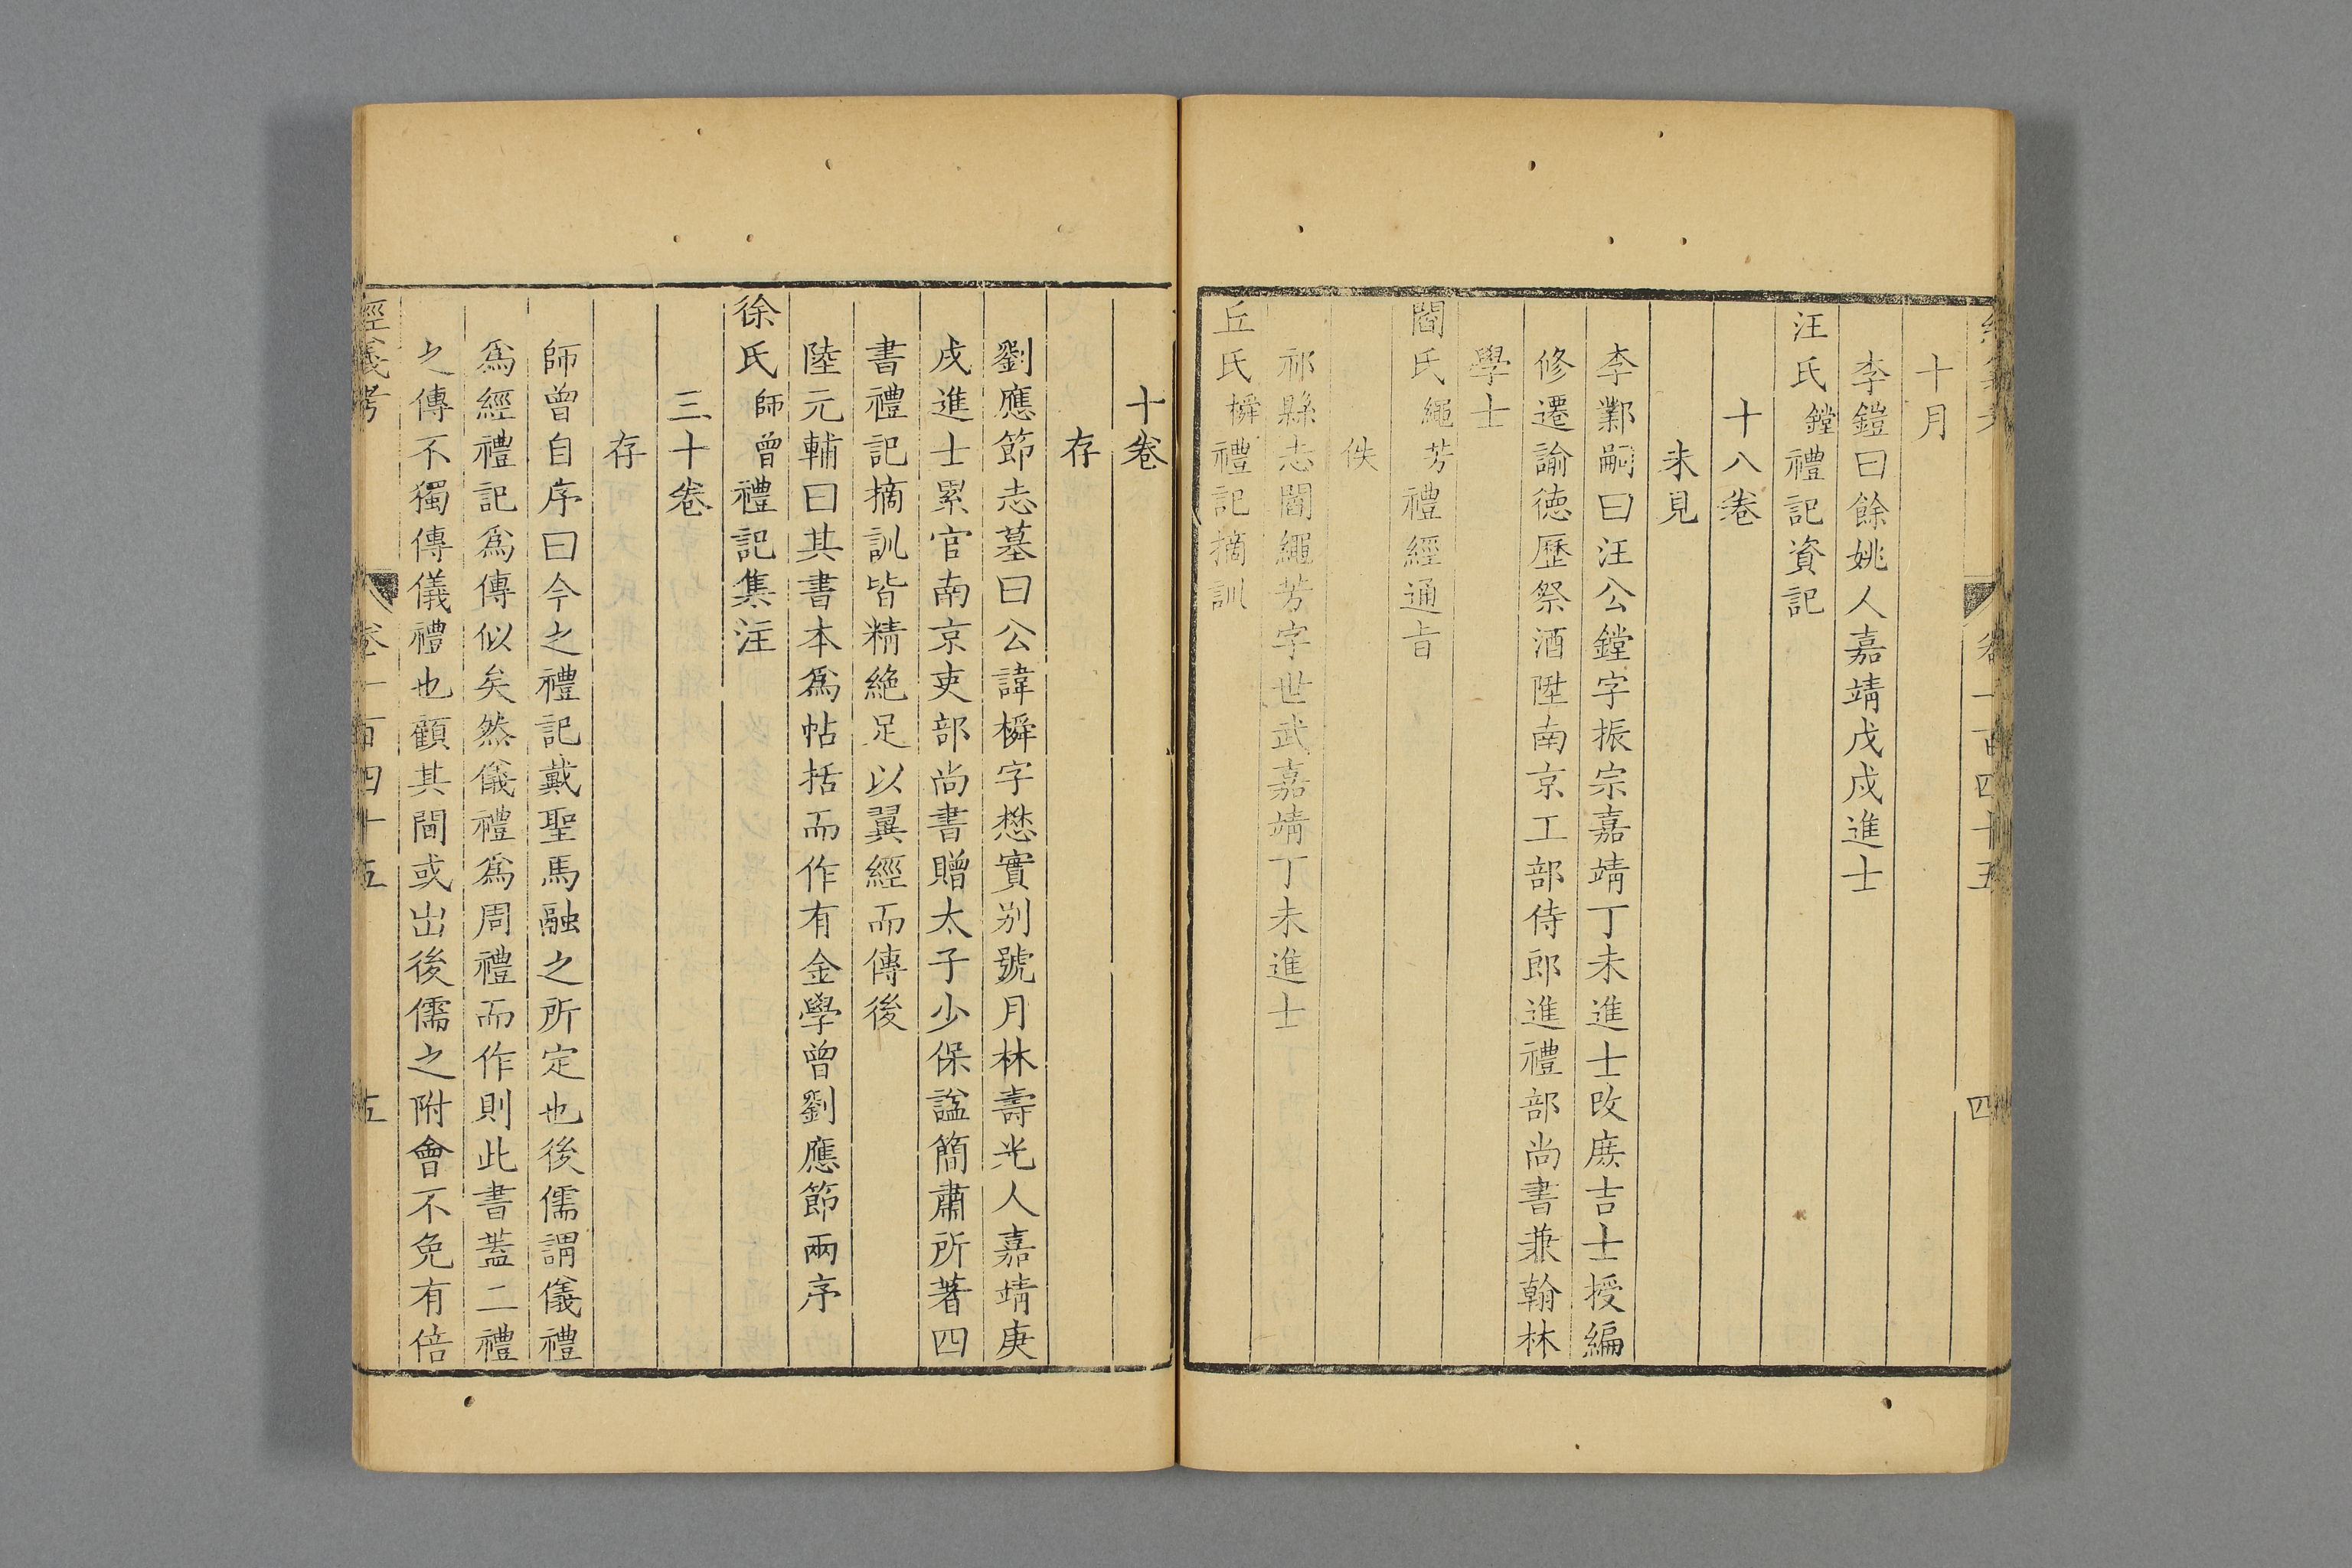 經義考 卷一百四十五 四
十月
李鎧曰餘姚人嘉靖戊戌進士
汪氏鏜禮記資記
十八卷
未見
李鄴嗣曰汪公鏜字振宗嘉靖丁未進士改庶吉士授編
修遷諭徳歷祭酒陞南京工部侍郎進禮部尚書兼翰林
學士
閻氏繩芳禮經通旨
佚
祁縣志閻繩芳字世武嘉靖丁未進士
丘氏橓禮記摘訓
十卷
存
劉應節志墓曰公諱橓字懋實别號月林壽光人嘉靖庚
戌進士累官南京吏部尚書贈太子少保諡簡肅所著四
書禮記摘訓皆精絶足以翼經而傳後
陸元輔曰其書本爲帖括而作有金學曾劉應節兩序
徐氏師曾禮記集注
三十卷
存
師曾自序曰今之禮記戴聖馬融之所定也後儒謂儀禮
爲經禮記爲傳似矣然儀禮爲周禮而作則此書蓋二禮
之傳不獨傳儀禮也顧其間或出後儒之附會不免有倍
經義考 卷一百四十五 五